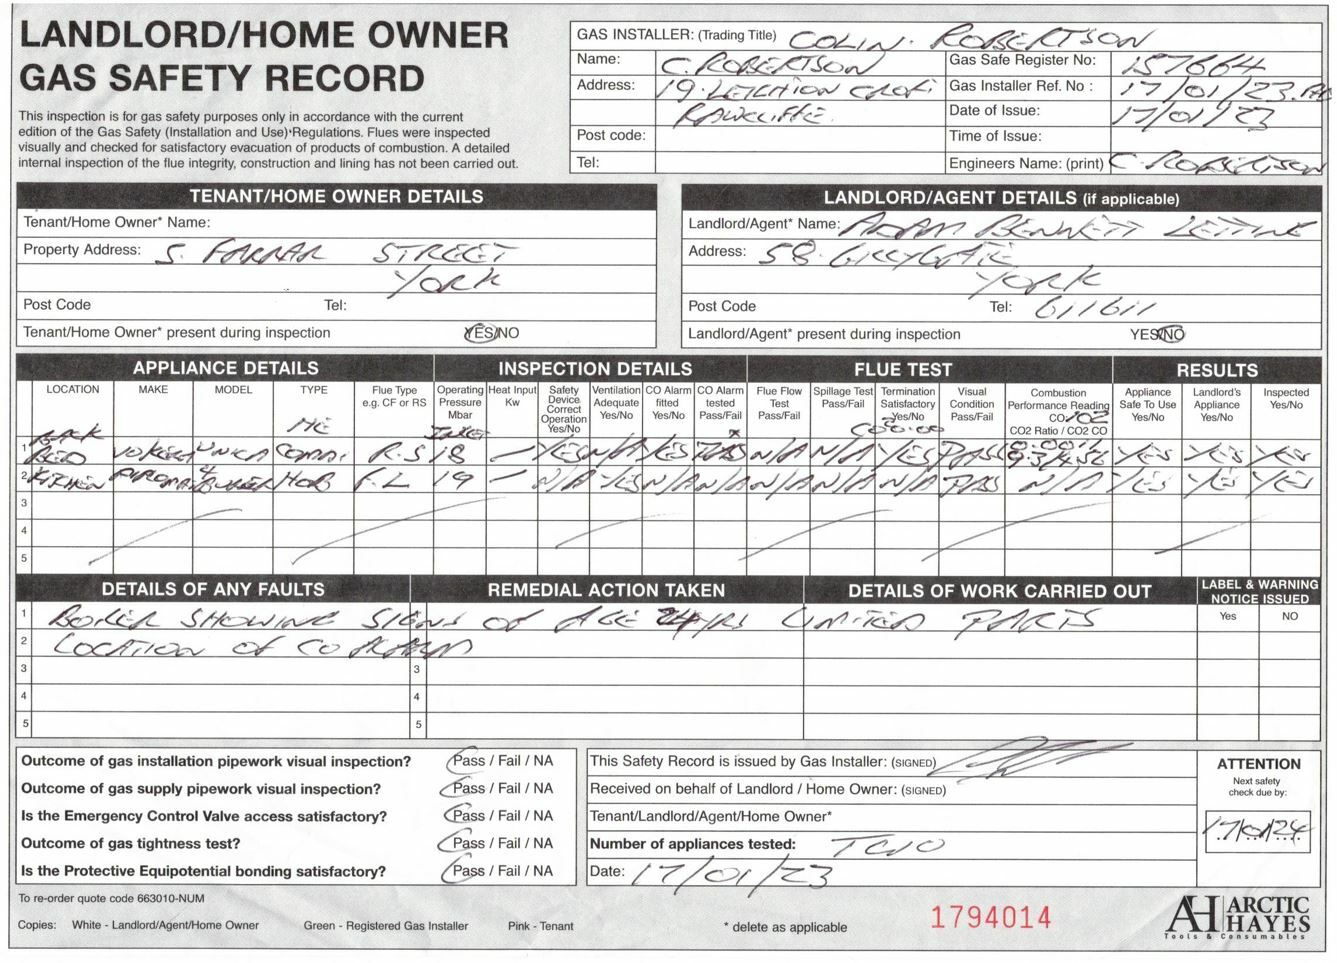 LANDLORD/HOME OWNER
GAS SAFETY RECORD
This inspection is for gas safety purposes only in accordance with the current
edition of the Gas Safety (Installation and Use) Regulations. Flues were inspected
visually and checked for satisfactory evacuation of products of combustion. A detailed
internal inspection of the flue integrity, construction and lining has not been carried out.
GAS INSTALLER: (Trading Title) COLIN. ROBERTSON
Name: C. ROBERTSON
Gas Safe Register No: 157664
Address: 19.
Gas Installer Ref. No : 17/01/23.
RAWCLIFFE.
Date of Issue: 17/01/23
Post code:
Time of Issue:
Tel:
Engineers Name: (print) C. ROBERTSON
TENANT/HOME OWNER DETAILS
Tenant/Home Owner* Name:
Property Address: 5. FARRAR STREET
YORK
Post Code Tel:
Tenant/Home Owner* present during inspection YES/NO
LANDLORD/AGENT DETAILS (if applicable)
Landlord/Agent* Name: ADAM BENNETT LETTING
Address: 58. GILLYGATE
YORK
Post Code Tel: 611611
Landlord/Agent* present during inspection YES/NO
APPLIANCE DETAILS INSPECTION DETAILS FLUE TEST RESULTS
LOCATION MAKE MODEL TYPE Flue Type e.g. CF or RS Operating Pressure Mbar Heat Input Kw Safety Device Correct Operation Yes/No Ventilation Adequate Yes/No CO Alarm fitted Yes/No CO Alarm tested Pass/Fail Flue Flow Test Pass/Fail Spillage Test Pass/Fail Termination Satisfactory Yes/No Visual Condition Pass/Fail Combustion Performance Reading CO/CO2 CO2 Ratio / CO2 CO Appliance Safe To Use Yes/No Landlord's Appliance Yes/No Inspected Yes/No
1 BACK BED VOKERA HE COMBI R.S 18 — YES N/A YES PASS N/A N/A YES PASS YES YES YES
2 KITCHEN 4 BURNER HOB F.L 19 — N/A YES N/A N/A N/A N/A N/A PASS N/A YES YES YES
3
4
5
DETAILS OF ANY FAULTS REMEDIAL ACTION TAKEN DETAILS OF WORK CARRIED OUT LABEL & WARNING NOTICE ISSUED
Yes NO
1 BOILER SHOWING SIGNS OF AGE 24YRS LIMITED PARTS
2 LOCATION OF CO ALARM
3 3
4 4
5 5
Outcome of gas installation pipework visual inspection? Pass / Fail / NA
Outcome of gas supply pipework visual inspection? Pass / Fail / NA
Is the Emergency Control Valve access satisfactory? Pass / Fail / NA
Outcome of gas tightness test? Pass / Fail / NA
Is the Protective Equipotential bonding satisfactory? Pass / Fail / NA
This Safety Record is issued by Gas Installer: (SIGNED)
Received on behalf of Landlord / Home Owner: (SIGNED)
Tenant/Landlord/Agent/Home Owner*
Number of appliances tested: TWO
Date: 17/01/23
ATTENTION
Next safety
check due by:
17/01/24
To re-order quote code 663010-NUM
Copies: White - Landlord/Agent/Home Owner Green - Registered Gas Installer Pink - Tenant * delete as applicable
1794014
AH ARCTIC
HAYES
Tools & Consumables